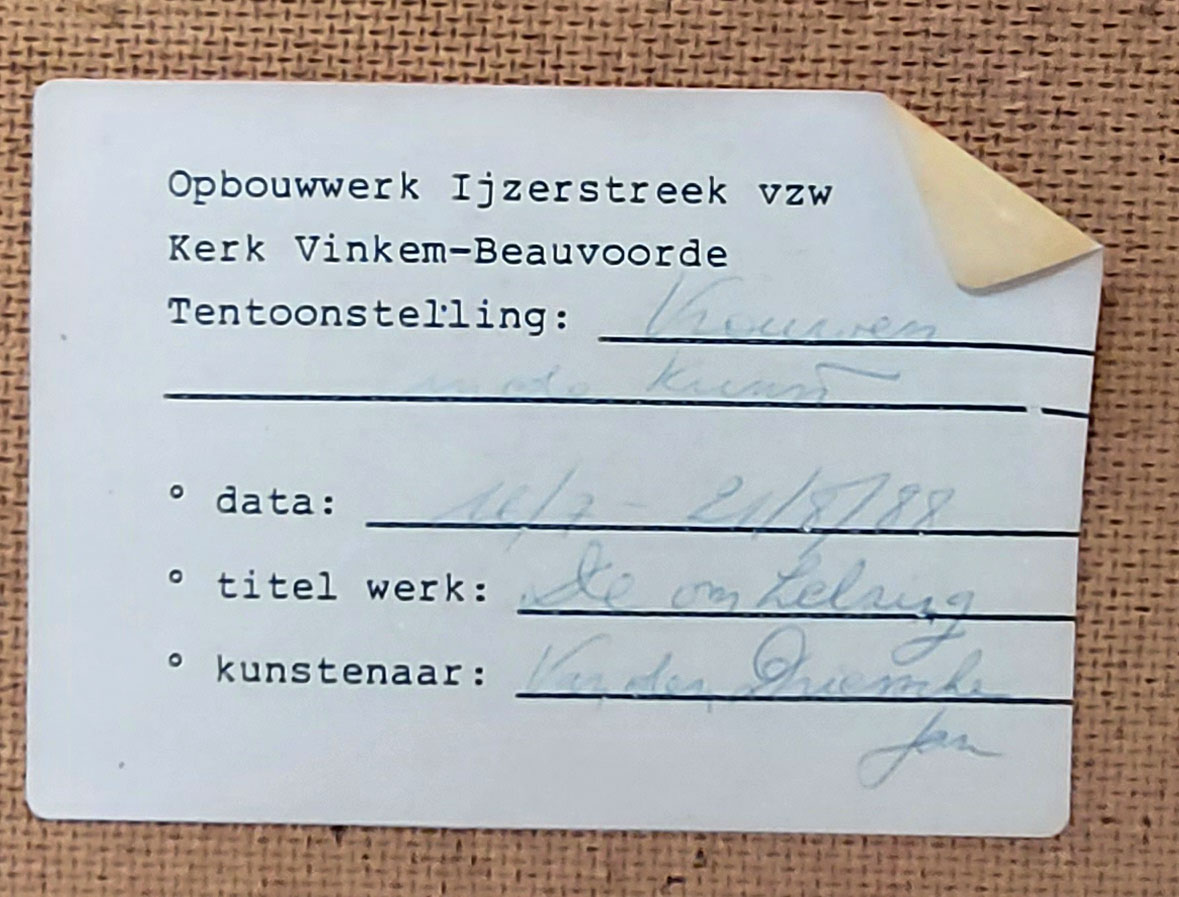 Opbouwwerk Ijzerstreek vzw
Kerk Vinkem-Beauvoorde
Tentoonstelling: Vrouwen
in de Kunst
° data: 16/7 - 21/8/88
° titel werk: De omhelzing
° kunstenaar: Van den
Jan